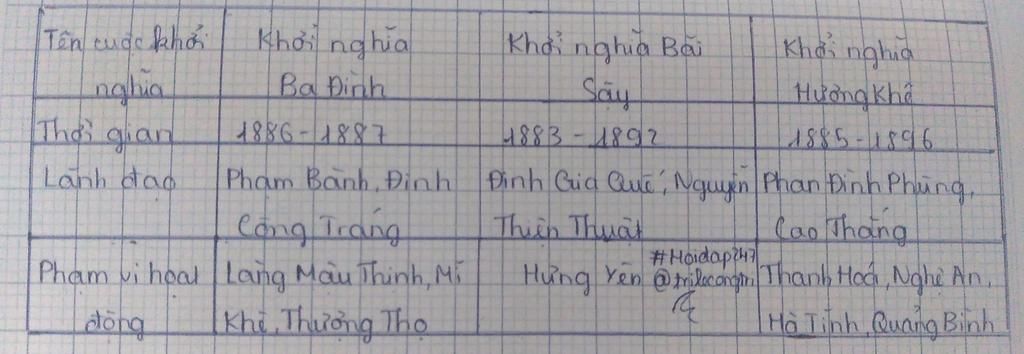 Tên cuộc khởi nghĩa
Khởi nghĩa Ba Đình
Khởi nghĩa Bãi Sậy
Khởi nghĩa Hương Khê
Thời gian
1886-1887
1883-1892
1885-1896
Lãnh đạo
Phạm Bành, Đinh Công Tráng
Đinh Gia Quế, Nguyễn Thiện Thuật
Phan Đình Phùng, Cao Thắng
Phạm vi hoạt động
Làng Mậu Thịnh, Mĩ Khê, Thượng Thọ
Hưng Yên
#Hoidap247
Thanh Hoá, Nghệ An, Hà Tĩnh, Quảng Bình